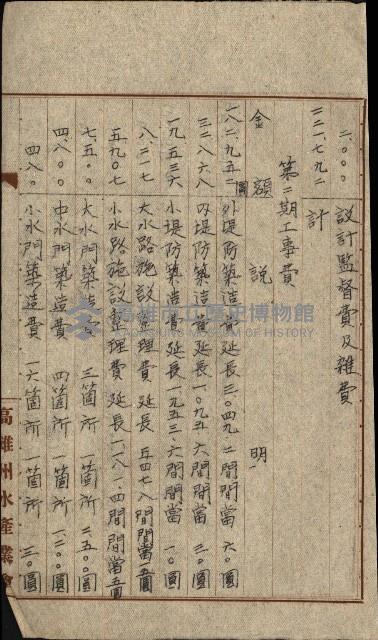 二.〇〇〇 設計監督費及雜費
二二一.七九二 計
第二期工事費
金額 說明
一八二.九五二圓 外堤防築造費延長三.〇四九.二間 間當 六〇圓
三二.八六八 內堤防築造費延長一.〇九五.六間 間當 三〇圓
一九.五三六 小堤防築造費延長一九五三.六間 間當 一〇圓
八.二一七 大水路施設整理費 延長五四七.八間 間當一五圓
五.九〇七 小水路施設整理費 延長一一八一.四間 間當五圓
七.五〇〇 大水門築造費 三箇所 一箇所 二.五〇〇圓
四.八〇〇 中水門築造費 四箇所 一箇所 一.二〇〇圓
四八〇 小水門築造費 一六箇所 一箇所 三〇圓
高雄州水產業會
高雄市立歷史博物館
KAOHSIUNG MUSEUM OF HISTORY